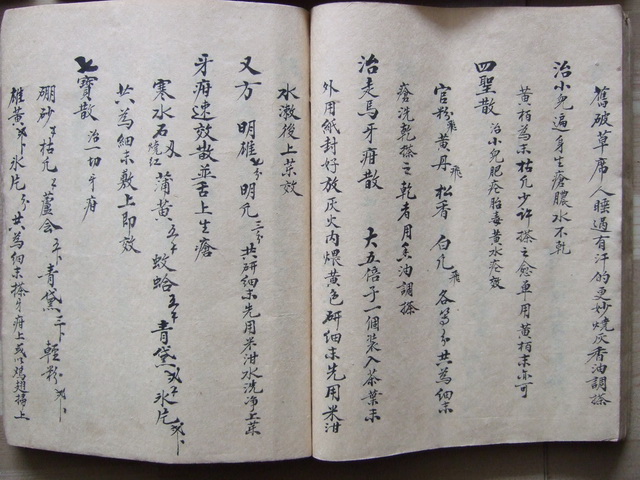 舊破草席人睡過有汗的更妙燒灰香油調搽
治小兒遍身生瘡膿水不乾
黄柏為末枯凡少許搽之愈单用黄柏末亦可
四聖散 治小兒肥疮胎毒黄水疮效
官粉飛黄丹飛松香 白凡飛 各等分共為細末
瘡洗乾搽之乾者用香油調搽
治走馬牙疳散 大五倍子一個装入茶葉末
外用紙封好放灰火内煨黄色研細末先用米泔
水漱後上末效
又方 明雄七分 明凡三分 共研細末先用米泔水洗净上末
牙疳速效散並舌上生瘡
寒水石 燒红 蒲黄五分 蚊蛤五分 青黛 氷片
共為細末敷上即效
七寳散 治一切牙疳
硼砂 枯凡 蘆会 青黛 輕粉
雄黄 氷片 共為細末搽牙疳上或以鸡翅掃上